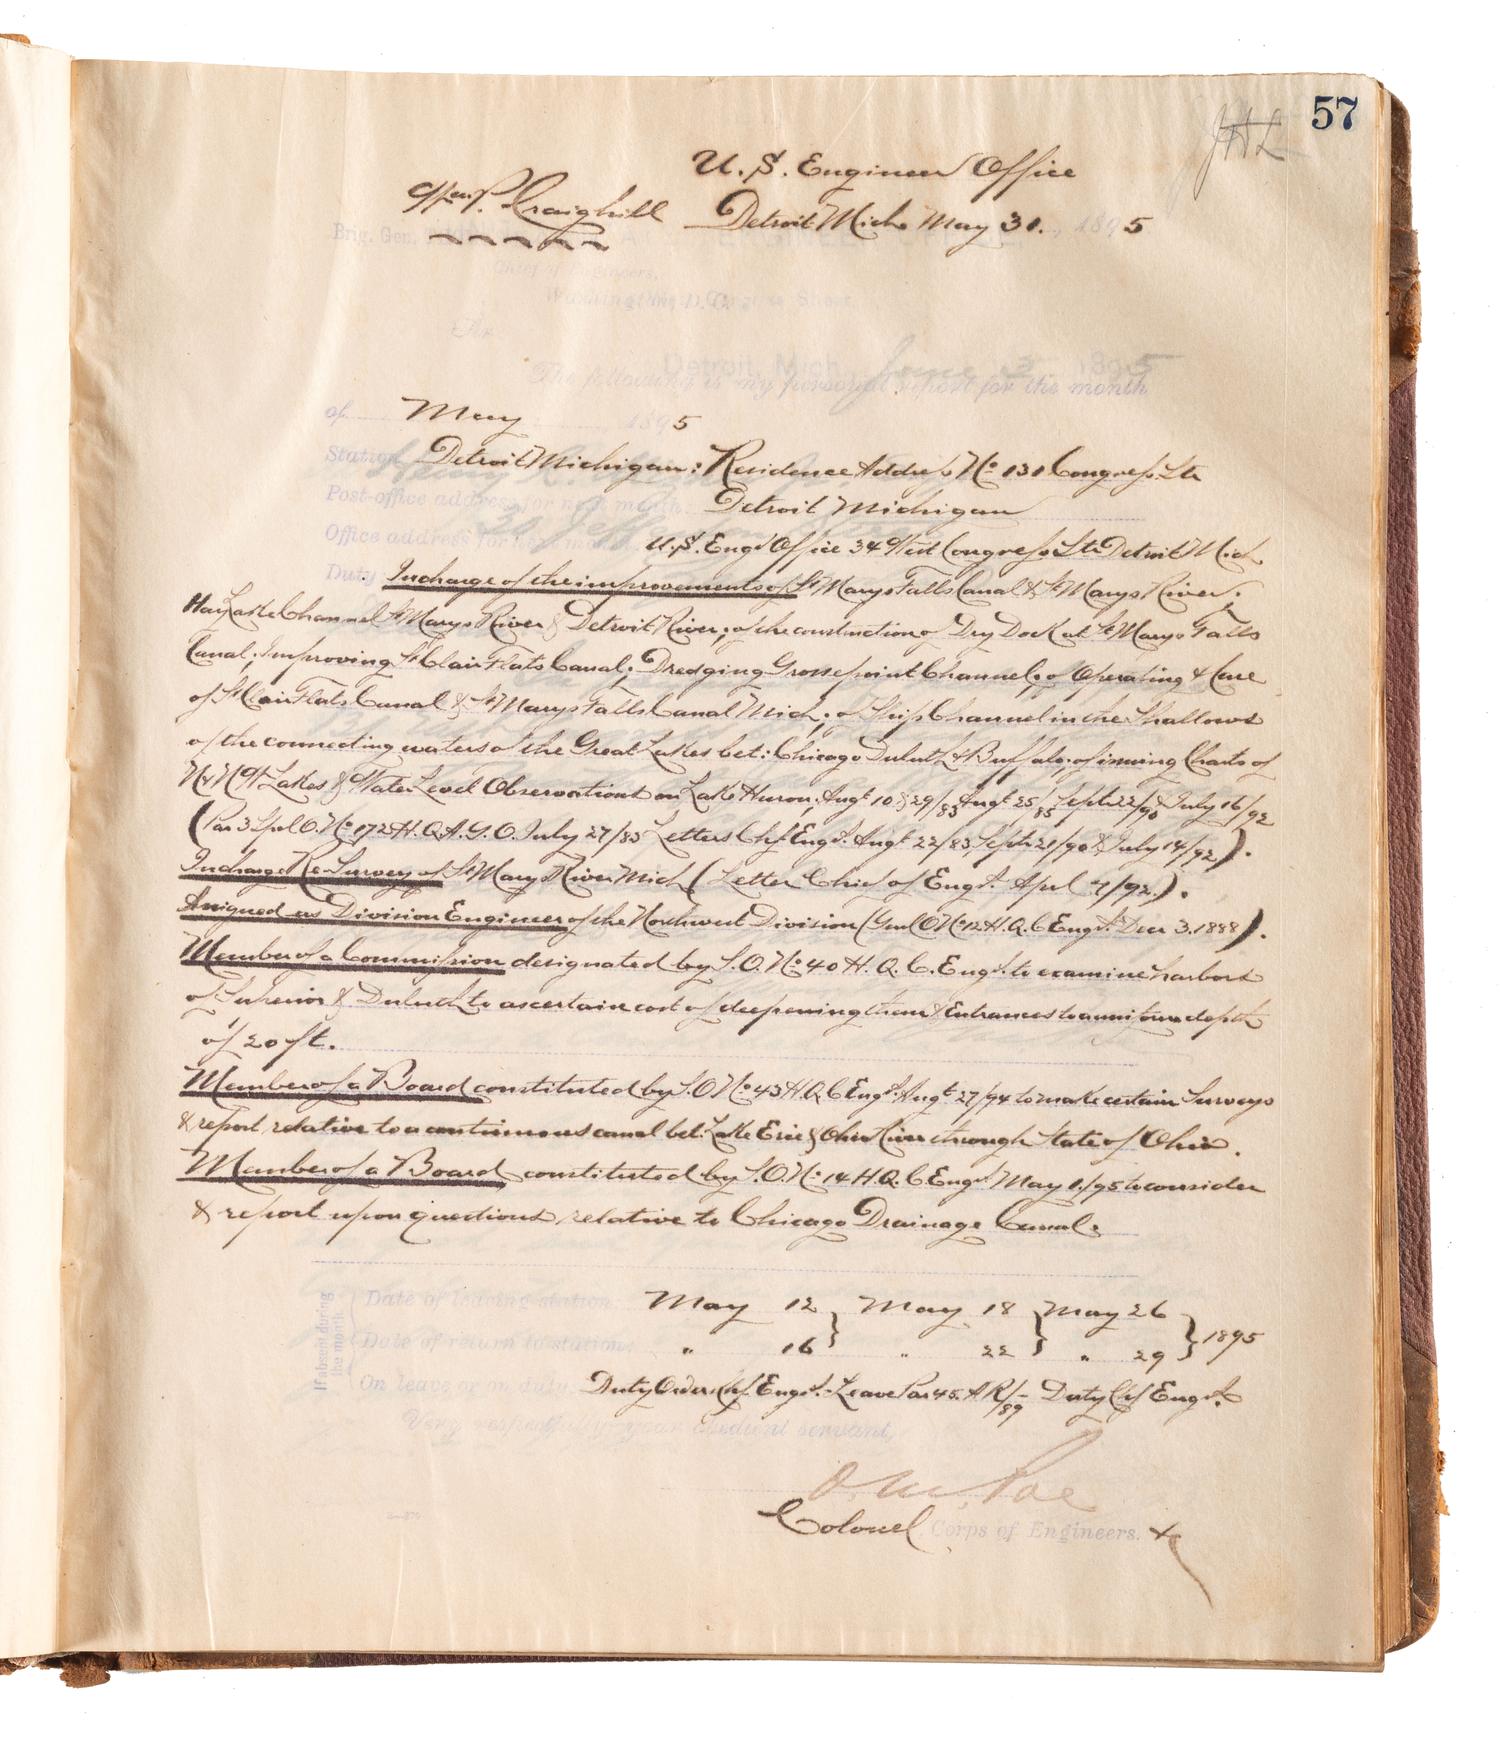 57
JHL
U. S. Engineer Office
Wm. P. Craighill Detroit Mich. May 31. , 1895
Brig. Gen.
Chief of Engineers,
Washington, D. C.
Sir
Detroit, Mich., June 1895
The following is my personal report for the month
of May , 1895
Station Detroit Michigan: Residence Address No. 131 Congress St.
Post-office address for next month. Detroit Michigan
Office address for next month U.S. Engr Office 34 West Congress St. Detroit Mich.
Duty In charge of the improvements of St Marys Falls Canal & St Marys River;
Hay Lake Channel St Marys River & Detroit River; of the construction of Dry Dock at St Marys Falls
Canal; Improving St Clair Flats Canal; Dredging Grossepoint Channel; of Operating & Care
of St Clair Flats Canal & St Marys Falls Canal Mich.; of Ship Channel in the Shallows
of the connecting waters of the Great Lakes bet: Chicago Duluth & Buffalo; of issuing Charts of
N & NW Lakes & Water Level Observations on Lake Huron; Augt 10 & 29/83 Augt 25/85 Septr 22/90 & July 16/92
(Par 3 Spl O. No 172 H.Q.A.G.O. July 27/83 Letters Chf Engrs. Augt 22/83, Septr 21/90 & July 14/92).
In charge Re-Survey of St Marys River Mich (Letter Chief of Engrs. Apl 7/92.).
Assigned as Division Engineer of the Northwest Division (Genl O No 12 H.Q.C Engrs. Decr 3.1888).
Member of a Commission designated by S.O. No. 40 H.Q.C. Engrs. to examine harbors
of Superior & Duluth to ascertain cost of deepening them & Entrances to a uniform depth
of 20 ft.
Member of a Board constituted by S.O No. 43 H.Q.C Engrs. Augt 27/94 to make certain Surveys
& report relative to a continuous canal bet: Lake Erie & Ohio River through State of Ohio.
Member of a Board constituted by S.O. No. 14 H.Q.C Engrs. May 1./95 to consider
& report upon questions relative to Chicago Drainage Canal.
If absent during the month
Date of leaving station: May 12 } May 18 } May 26 } 1895
Date of return to station: " 16 } " 22 } " 29 }
On leave or on duty. Duty Orders Chf Engrs.- Leave Par 45. A R/89 - Duty Chf Engrs.
Very respectfully your obedient servant,
O. M. Poe
Colonel Corps of Engineers.